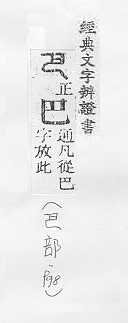 經典文字辨證書
正巴通凡從巴
字放此
（巴部．398）